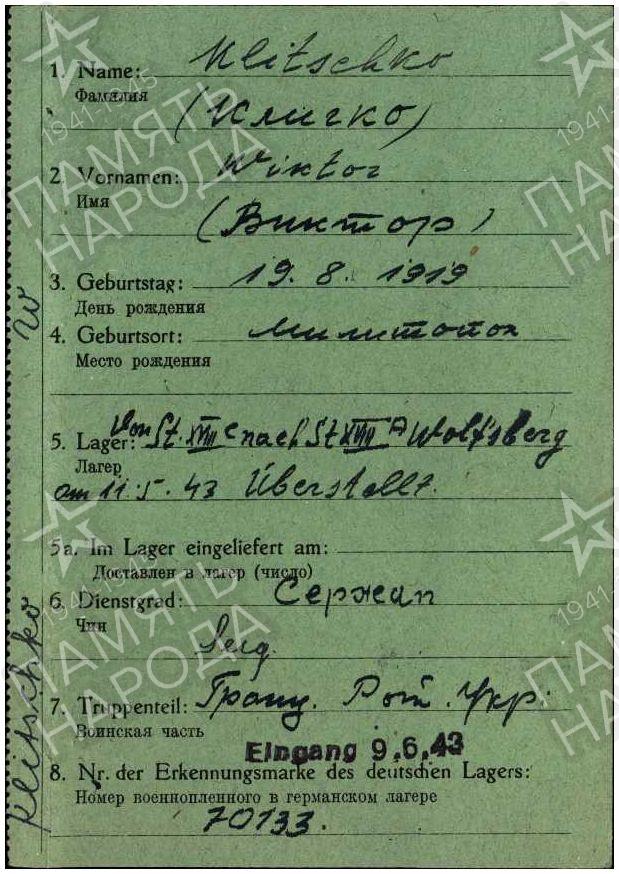 1. Name: Klitschko
Фамилия
(Кличко)
2. Vornamen: Wiktor
Имя
(Виктор)
3. Geburtstag: 19. 8. 1919
День рождения
4. Geburtsort: Милитопол
Место рождения
5. Lager: Von St. XVIII C nach St XVIII A Wolfsberg
Лагерь
am 11. 5. 43 Überstellt.
5a. Im Lager eingeliefert am:
Доставлен в лагерь (число)
6. Dienstgrad: Сержан
Чин
Serg.
7. Truppenteil: Рот. Укр.
Воинская часть
Eingang 9.6.43
8. Nr. der Erkennungsmarke des deutschen Lagers:
Номер военнопленного в германском лагере
70133.
Klitschko W
ПАМЯТЬ
НАРОДА
1941-1945